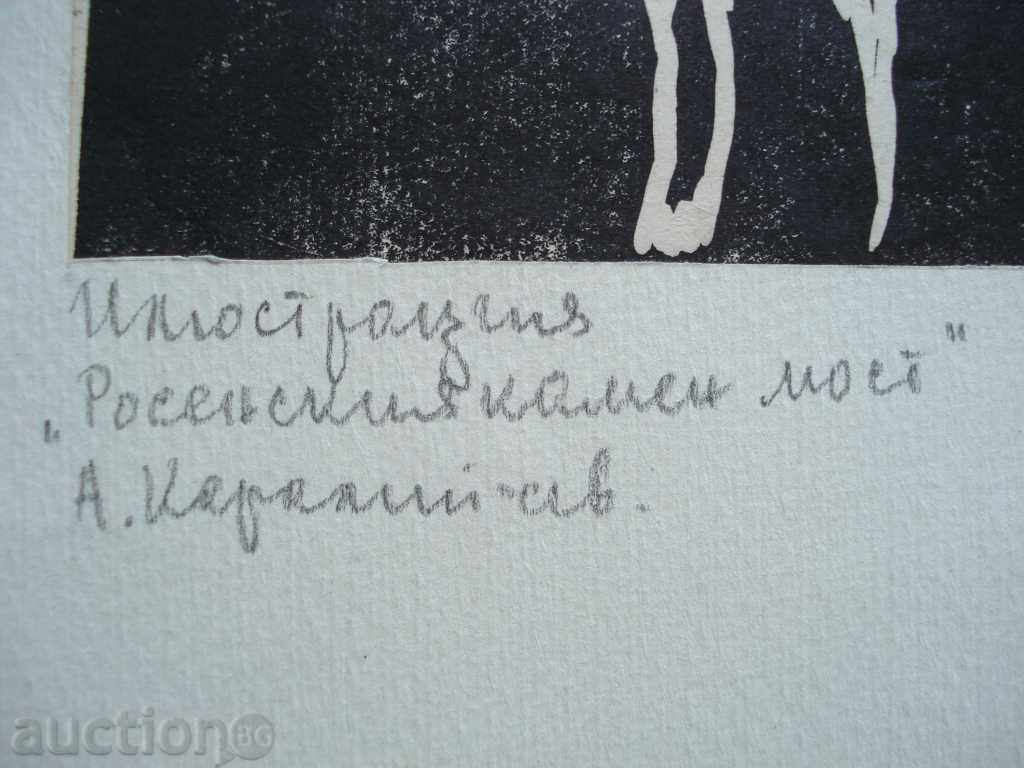 Илюстрация
„Росенския камен мост"
А. Каралийчев.
auctionBG